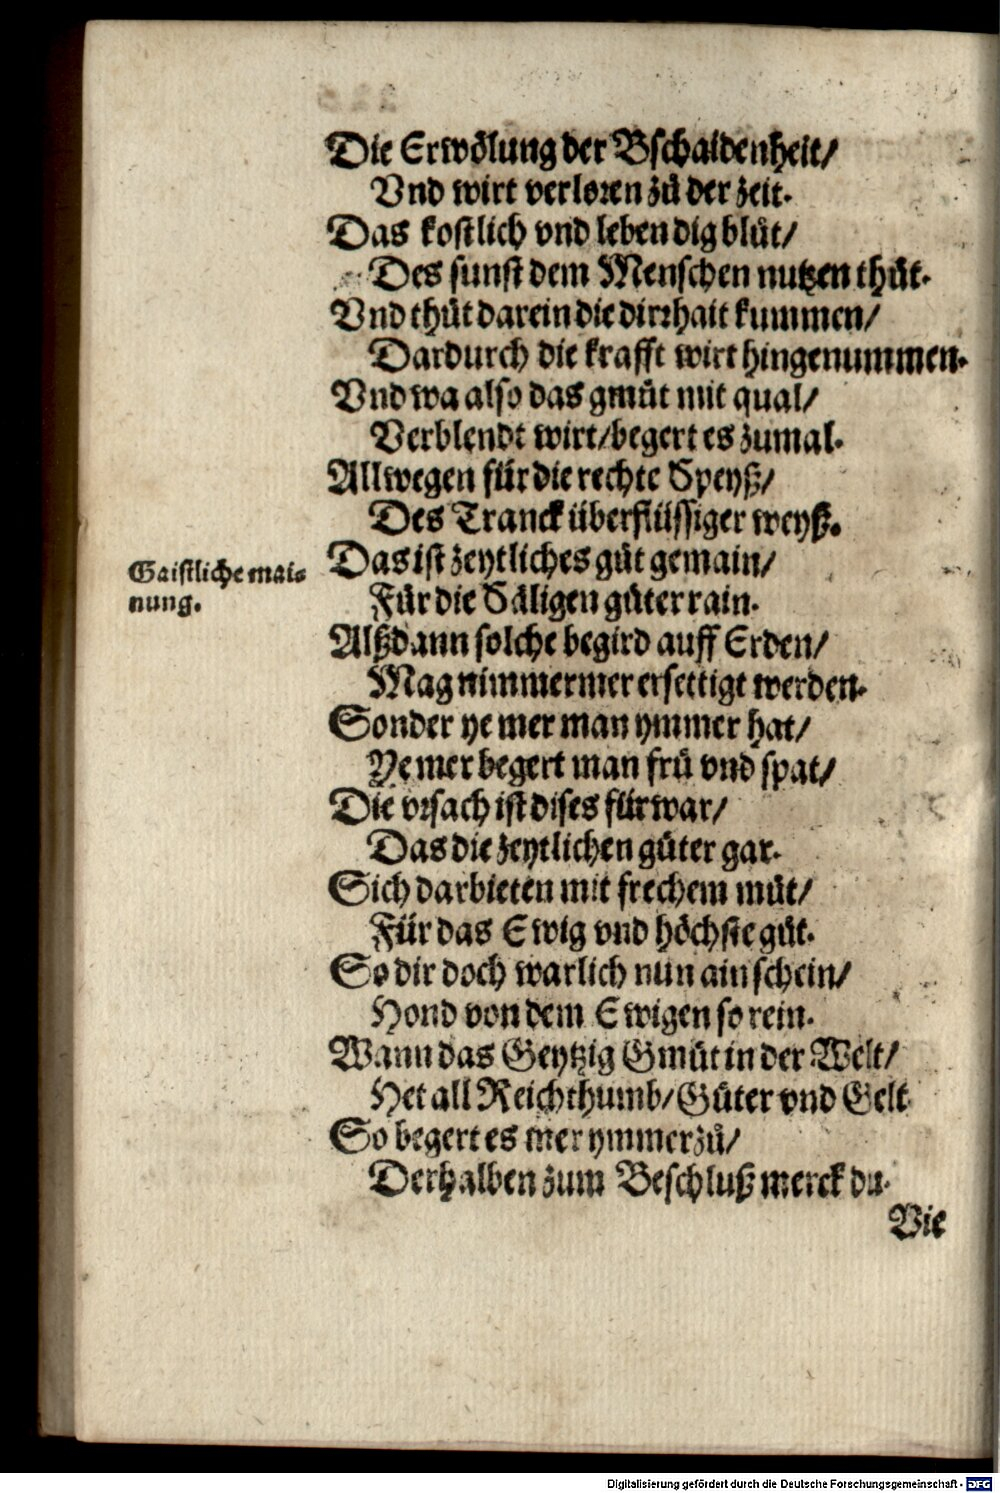 Die Erwölung der Bschaidenheit/
Vnd wirt verloren zů der zeit.
Das kostlich vnd lebendig blůt/
Des sunst dem Menschen nutzen thůt.
Vnd thůt darein die dirrhait kummen/
Dardurch die krafft wirt hingenummen.
Vnd wa also das gmůt mit qual/
Verblendt wirt/begert es zumal.
Allwegen für die rechte Speyß/
Des Tranck überflüssiger weyß.
Gaistliche mai-
nung.
Das ist zeytliches gůt gemain/
Für die Säligen güter rain.
Alßdann solche begird auff Erden/
Mag nimmermer ersettigt werden.
Sonder ye mer man ymmer hat/
Ye mer begert man frů vnd spat/
Die vrsach ist dises fürwar/
Das die zeytlichen güter gar.
Sich darbieten mit frechem můt/
Für das Ewig vnd höchste gůt.
So dir doch warlich nun ain schein/
Hond von dem Ewigen so rein.
Wann das Geytzig Gmůt in der Welt/
Het all Reichthumb/Güter vnd Gelt
So begert es mer ymmerzů/
Derhalben zum Beschluß merck du.
Vie
Digitalisierung gefördert durch die Deutsche Forschungsgemeinschaft - DFG